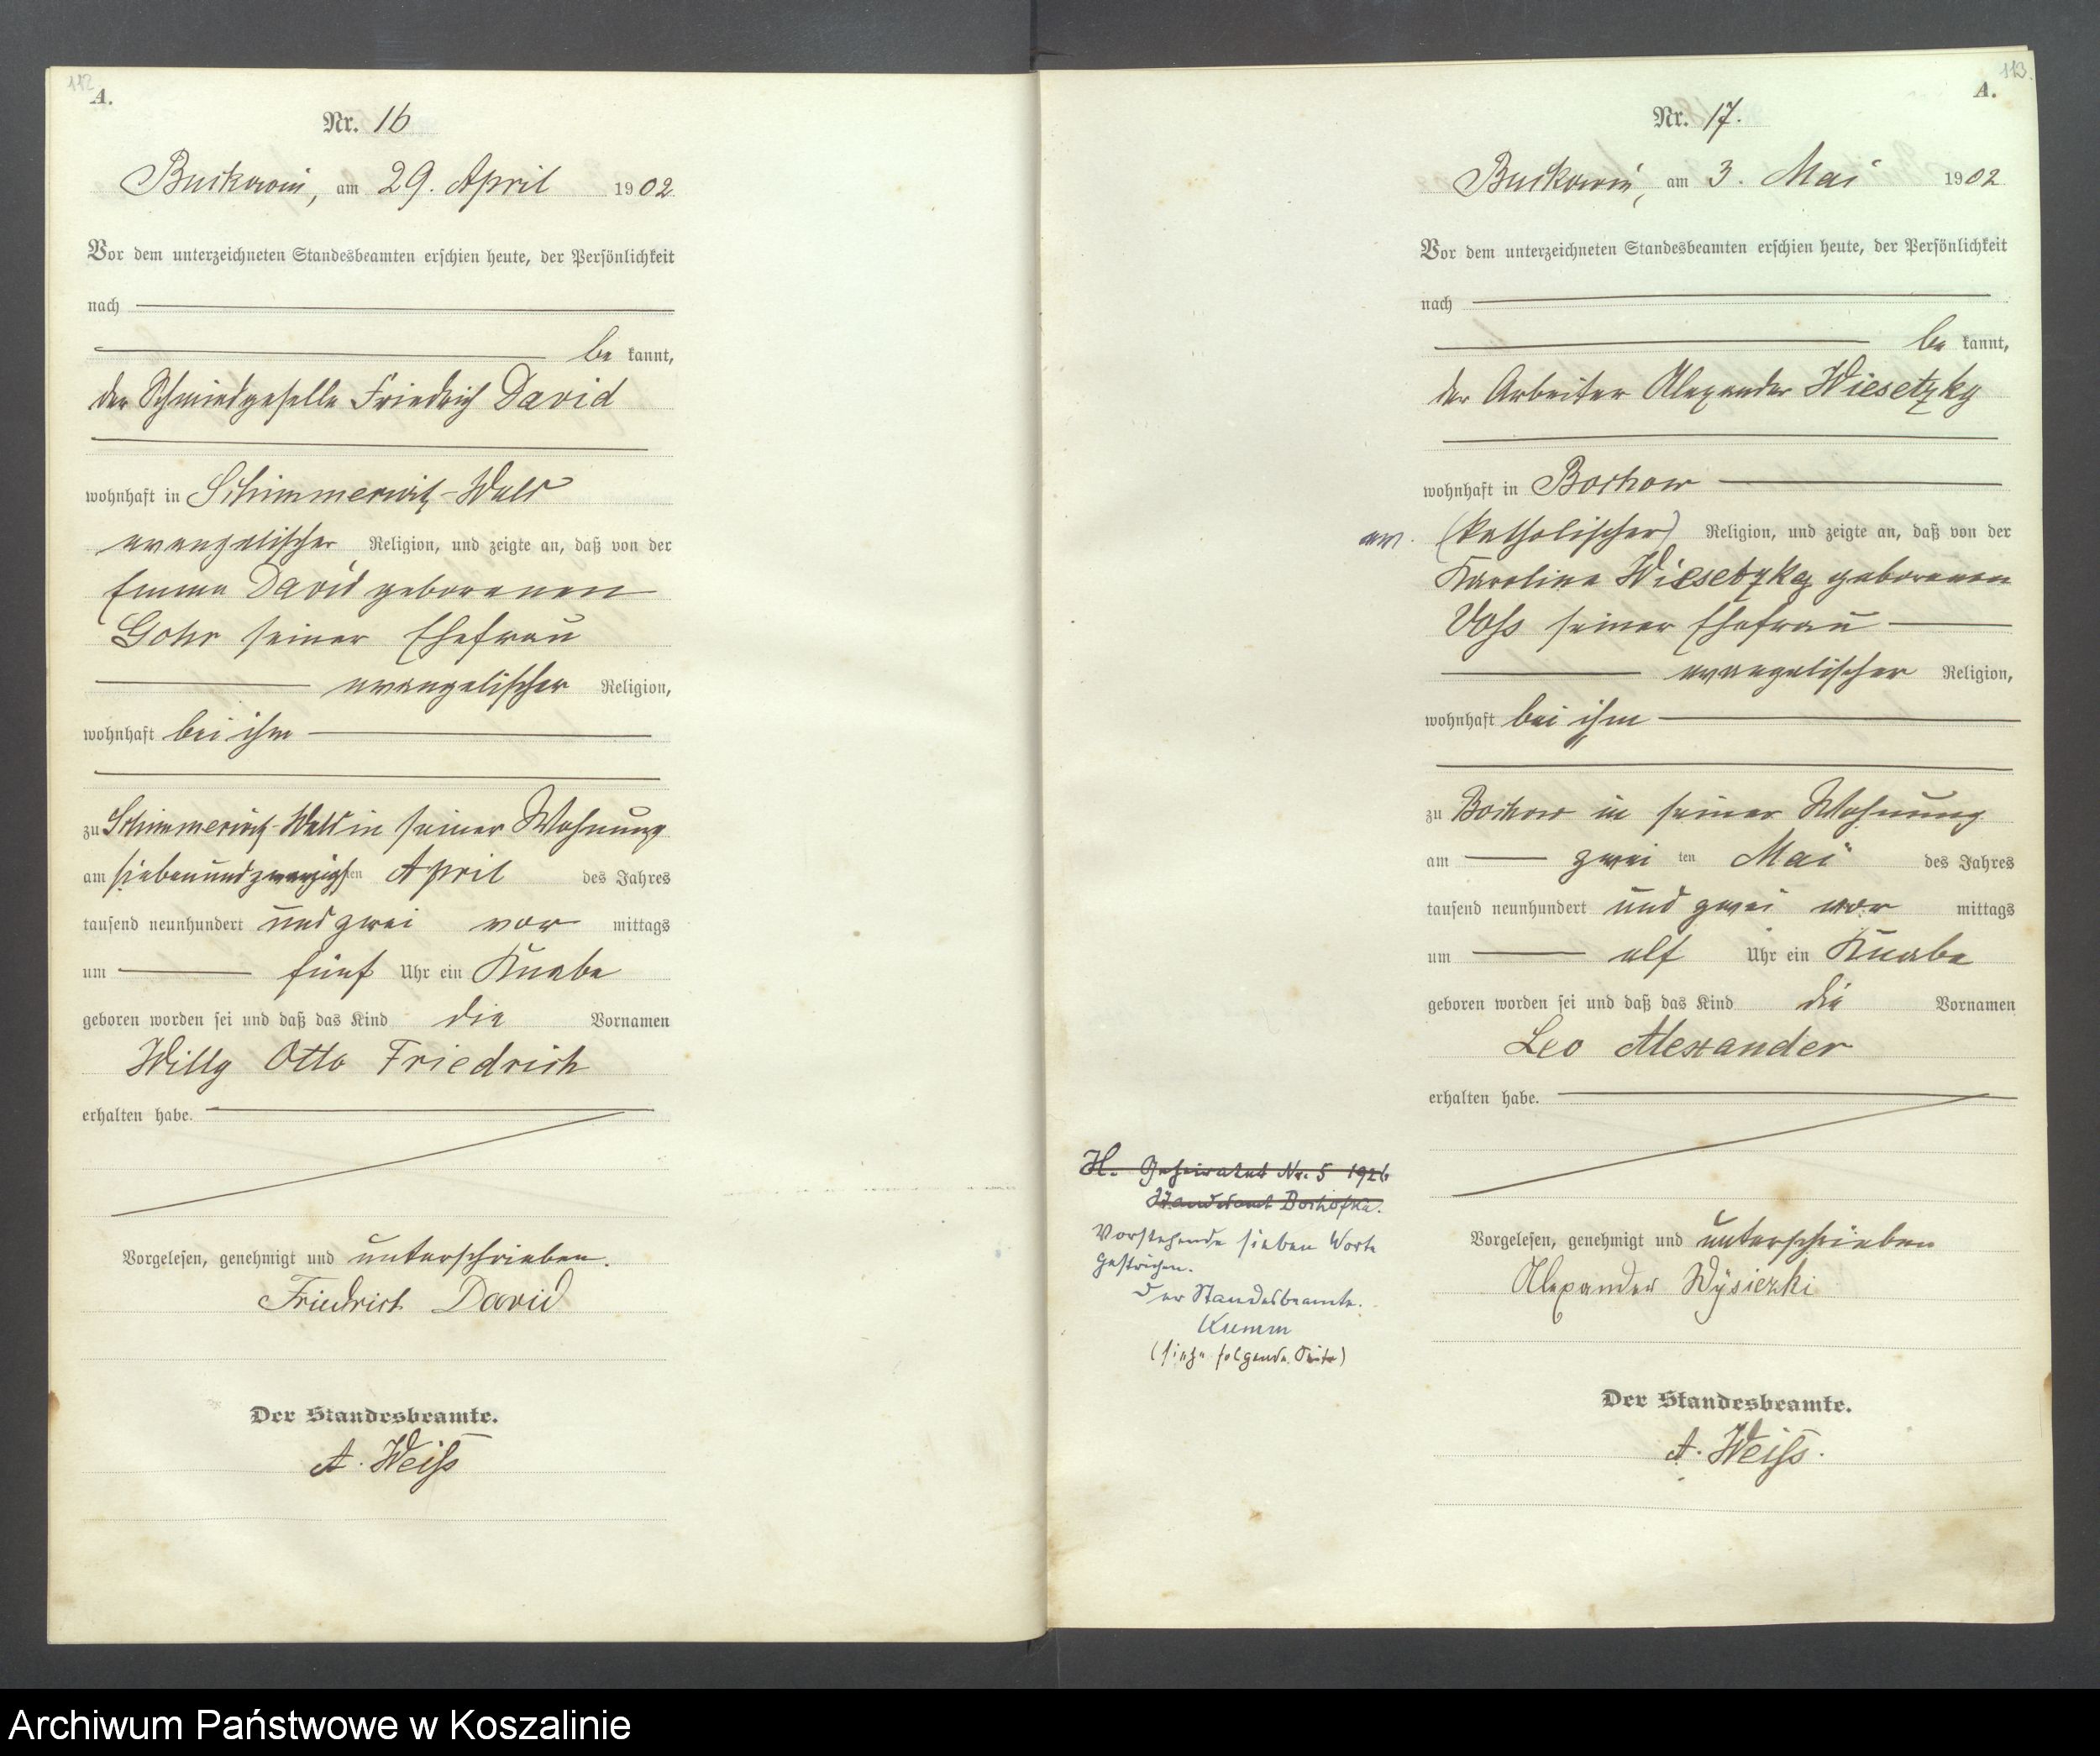 112
A.
Nr. 16
Buckowin, am 29. April 1902
Vor dem unterzeichneten Standesbeamten erschien heute, der Persönlichkeit
nach
be kannt,
der Schmiedgeselle Friedrich David
wohnhaft in Schimmerwitz-Wald
evangelischer Religion, und zeigte an, daß von der
Emma David geborenen
Gohr seiner Ehefrau
evangelischer Religion,
wohnhaft bei ihm
zu Schimmerwitz-Wald in seiner Wohnung
am siebenundzwanzigsten April des Jahres
tausend neunhundert und zwei vor mittags
um fünf Uhr ein Knabe
geboren worden sei und daß das Kind die Vornamen
Willy Otto Friedrich
erhalten habe.
Vorgelesen, genehmigt und unterschrieben.
Friedrich David
Der Standesbeamte.
A. Weiß
113.
A.
Nr. 17.
Buckowin, am 3. Mai 1902
Vor dem unterzeichneten Standesbeamten erschien heute, der Persönlichkeit
nach
be kannt,
der Arbeiter Alexander Wiesetzky
wohnhaft in Bochow
ev. (katholischer) Religion, und zeigte an, daß von der
Karoline Wiesetzky geborenen
Voß seiner Ehefrau
evangelischer Religion,
wohnhaft bei ihm
zu Bochow in seiner Wohnung
am zwei ten Mai des Jahres
tausend neunhundert und zwei vor mittags
um elf Uhr ein Knabe
geboren worden sei und daß das Kind die Vornamen
Leo Alexander
erhalten habe.
H. Geheiratet Nr. 5 1926
Standesamt
Vorstehende sieben Worte
gestrichen.
Der Standesbeamte.
Kumm
(siehe folgende Seite)
Vorgelesen, genehmigt und unterschrieben
Alexander Wÿsiezki
Der Standesbeamte.
A. Weiß.
Archiwum Państwowe w Koszalinie